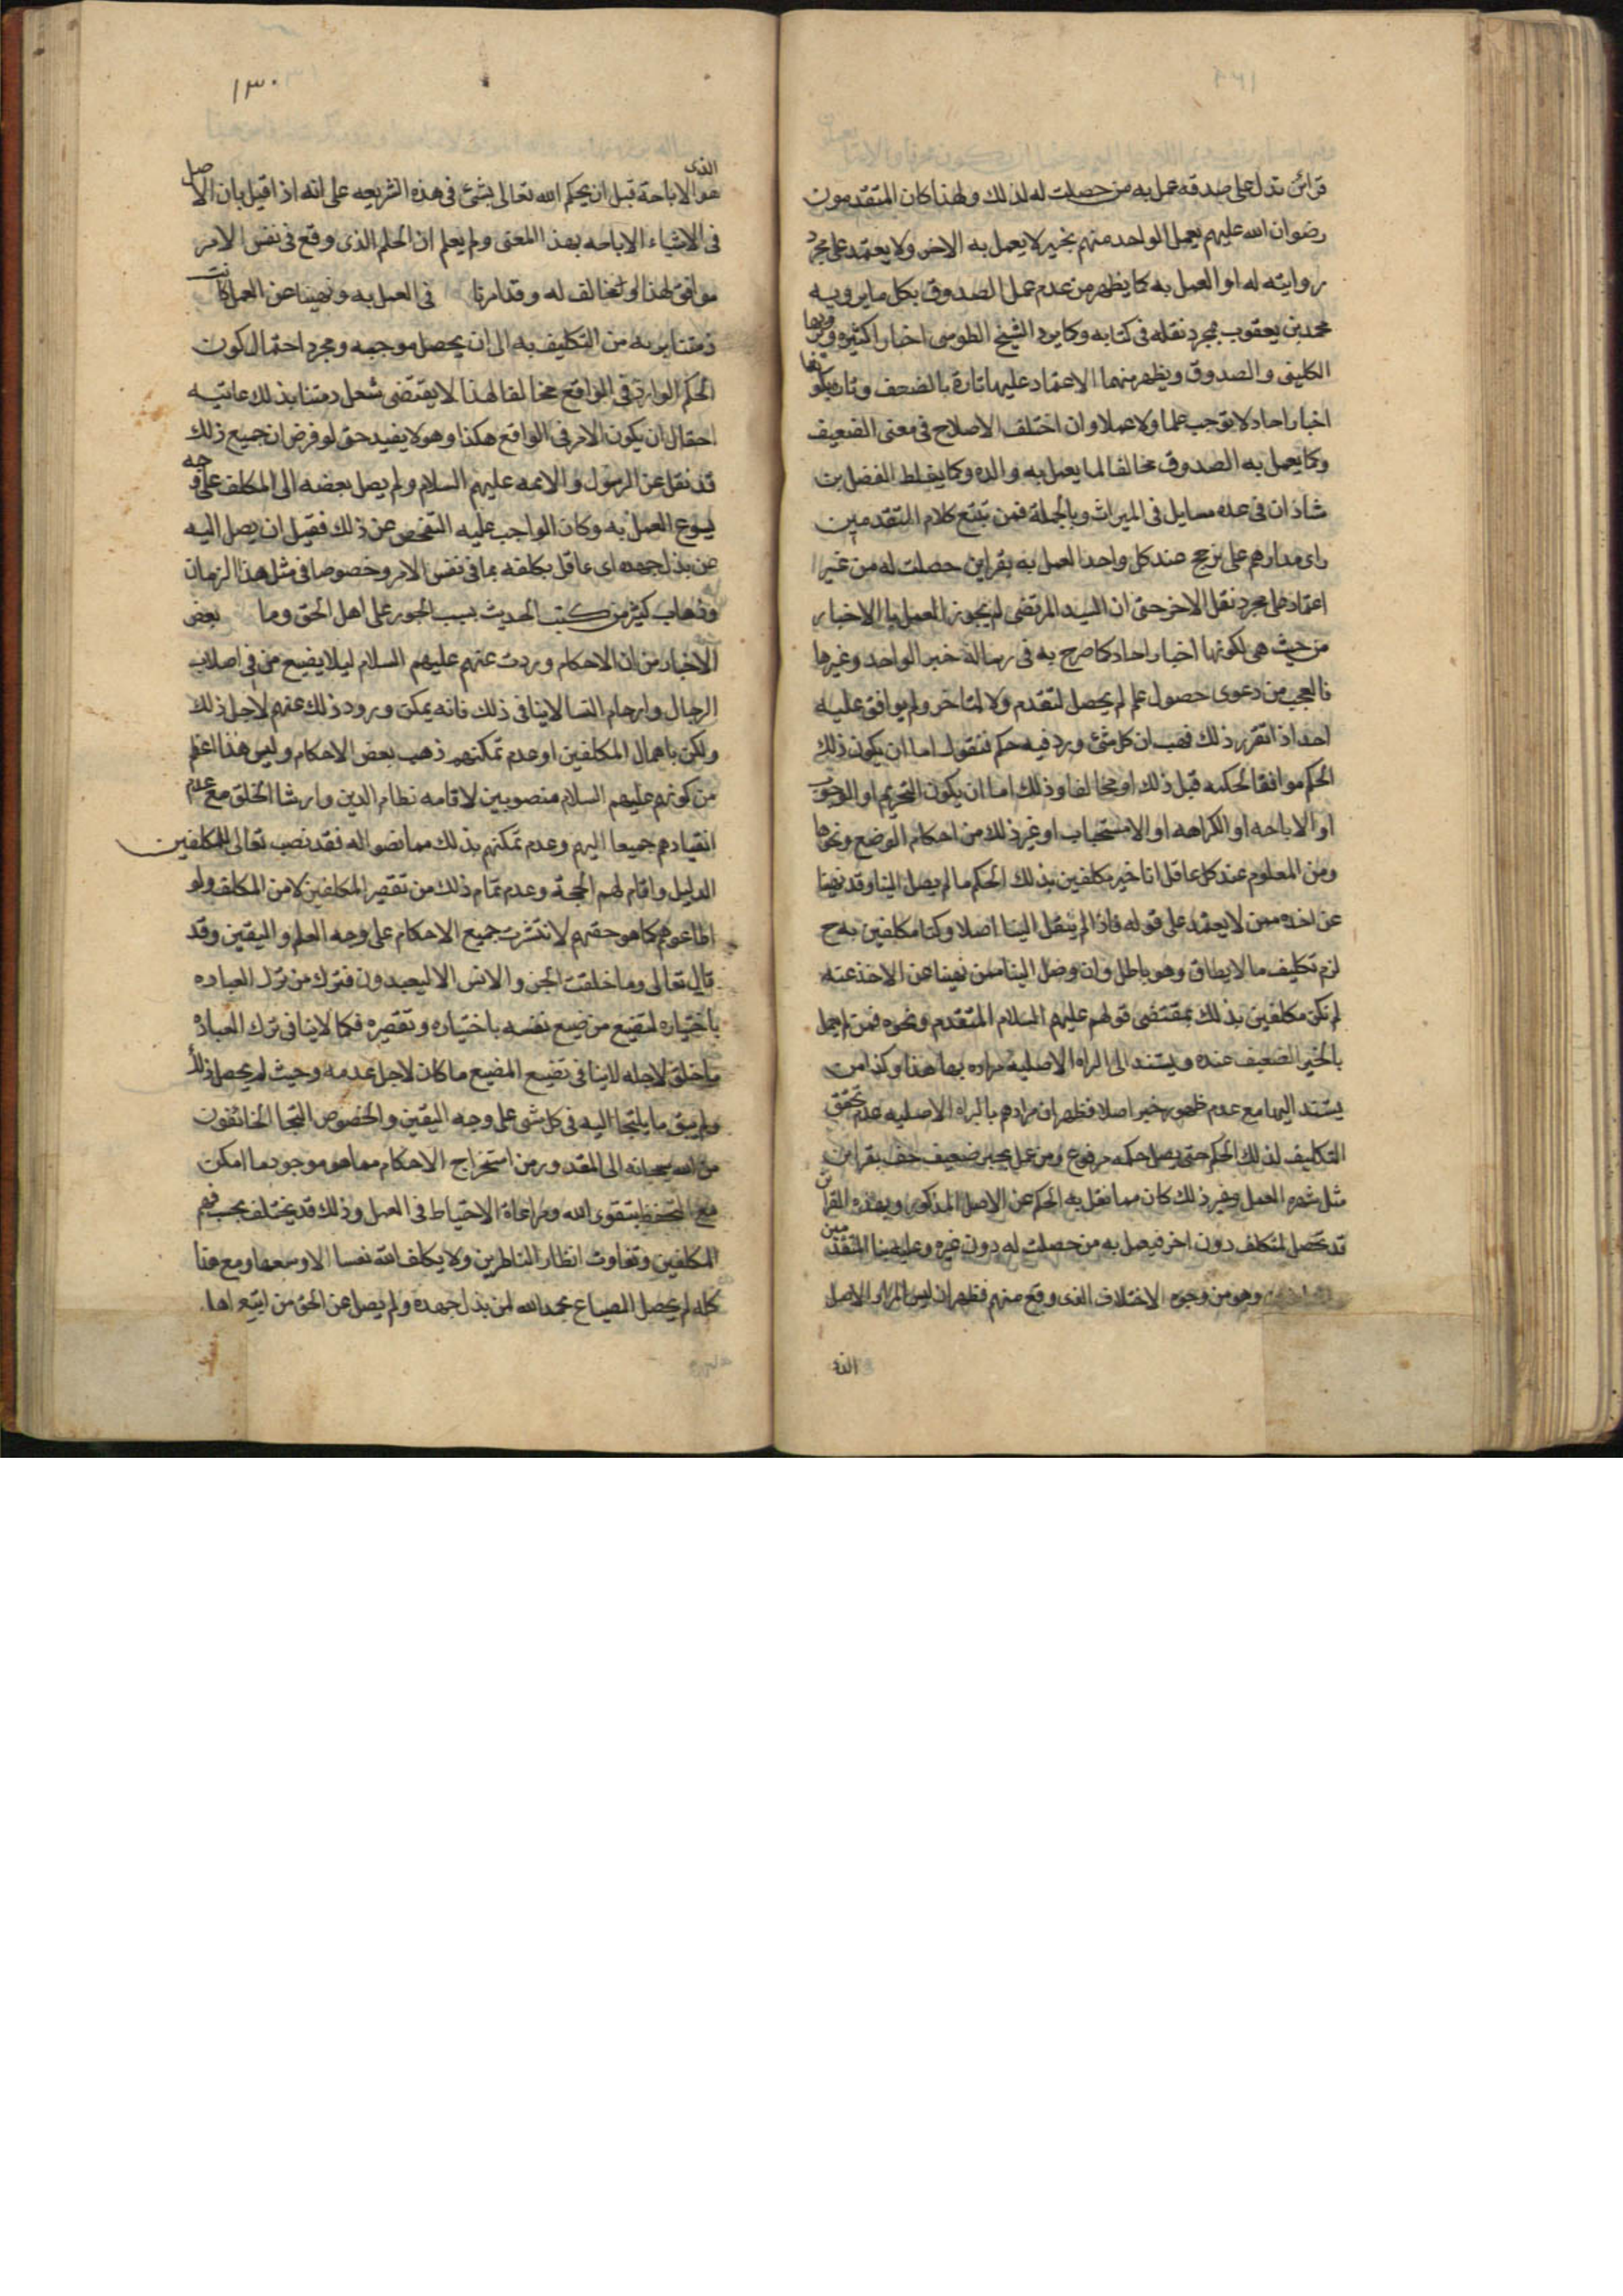 قرائن تدل على صدقه عمل به من حصلت له لذلك ولهذا كان المتقدمون
رضوان الله عليهم يعمل الواحد منهم بخبر لا يعمل به الاخر ولا يعتمد على مجرد
روايته له او العمل به كما يظهر من عدم عمل الصدوق بكل ما يرويه
محمد بن يعقوب بمجرد نقله فى كتابه وكما يرد الشيخ الطوسى اخبارا كثيره يرويها
الكلينى والصدوق ويظهر منهما الاعتماد عليها تارة بالضعف وتارة بكونها
اخبار احاد لا توجب علما ولا عملا وان اختلف الاصلاح فى معنى الضعيف
وكما يعمل به الصدوق مخالفا لما يعمل به والده وكما يغلط الفضل بن
شاذان فى عده مسايل فى الميراث وبالجملة فمن تتبع كلام المتقدمين
راى مدارهم على ترجح عند كل واحد العمل به بقراين حصلت له من غير
اعتماد على مجرد نقل الاخر حتى ان السيد المرتضى لم يجوز العمل بالاخبار
من حيث هى لكونها اخبار احاد كما صرح به فى رسالة خبر الواحد وغيرها
فالعجب من دعوى حصول علم لم يحصل لمتقدم ولا لمتاخر ولم يوافق عليه
احد اذا تقرر ذلك فهب ان كل شئ ورد فيه حكم فنقول اما ان يكون ذلك
الحكم موافقا لحكمه قبل ذلك او مخالفا وذلك اما ان يكون التحريم او الوجوب
او الاباحه او الكراهه او الاستحباب او غير ذلك من احكام الوضع ونحوها
ومن المعلوم عند كل عاقل انا غير مكلفين بذلك الحكم ما لم يصل الينا وقد نهينا
عن اخذه ممن لا يعتمد على قوله فاذا لم ينقل الينا اصلا وكنا مكلفين به ح
لزم تكليف ما لا يطاق وهو باطل وان وصل الينا ممن نهينا عن الاخذ عنه
لم نكن مكلفين بذلك بمقتضى قولهم عليهم السلام المتقدم ونحوه فمن لم يعمل
بالخبر الضعيف عنده ويستند الى البراه الاصليه مراده بها هذا وكذا من
يستند اليها مع عدم ظهور خبر اصلا فظهر ان مرادهم بالبراه الاصليه عدم تحقق
التكليف لذلك الحكم حتى يصل حكمه مرفوع ومن عمل بخبر ضعيف حف بقراين
مثل شهره العمل وغير ذلك كان مما نقل به الحكم عن الاصل المذكور وهذه القراين
قد تحصل لمكلف دون اخر فيعمل به من حصلت له دون غيره وعليه بنا المتقدمين
وهو من وجوه الاختلاف الذى وقع منهم فظهر ان ليس المراد الاصل
الذى
١٣٠
الذى
هو الاباحة قبل ان يحكم الله تعالى بشئ فى هذه الشريعه على انه اذا قيل بان الاصل
فى الاشياء الاباحه بهذا المعنى ولم يعلم ان الحكم الذى وقع فى نفس الامر
موافق لهذا او مخالف له وقد امرنا فى العمل به ونهينا عن العمل كانت
ذمتنا بريه من التكليف به الى ان يحصل موجبه ومجرد احتمال كون
الحكم الوارد فى الواقع مخالفا لهذا لا يقتضى شغل ذمتنا بذلك غايته
احتمال ان يكون الامر فى الواقع هكذا وهو لا يفيد حتى لو فرض ان جميع ذلك
قد نقل عن الرسول والائمه عليهم السلام ولم يصل بعضه الى المكلف على وجه
يسوغ العمل به وكان الواجب عليه التفحص عن ذلك فقيل ان يصل اليه
عن بذل جهده اى عاقل يكلفه بما فى نفس الامر وخصوصا فى مثل هذا الزمان
وذهاب كثير من كتب الحديث بسبب الجور على اهل الحق وما بعض
الاخبار من ان الاحكام وردت عنهم عليهم السلام ليلا يضيع من فى اصلاب
الرجال وارحام النسا لا ينافى ذلك فانه يمكن ورود ذلك عنهم لاجل ذلك
ولكن باهمال المكلفين او عدم تمكنهم ذهب بعض الاحكام وليس هذا اعظم
من كونهم عليهم السلام منصوبين لاقامه نظام الدين وارشاد الخلق مع عدم
انقيادهم جميعا اليهم وعدم تمكنهم بذلك مما نصبوا له فقد نصب تعالى للمكلفين
الدليل واقام لهم الحجة وعدم تمام ذلك من تقصير المكلفين لا من المكلف ولو
اطاعوهم كما هو حقهم لانتشرت جميع الاحكام على وجه العلم واليقين وقد
قال تعالى وما خلقت الجن والانس الا ليعبدون فترك من ترك العباده
باختياره لتضيع من ضيع نفسه باختياره وتقصيره فكما لا ينافى ترك العبادة
ما خلق لاجله لا ينافى تضيع المضيع ما كان لاجل عدمه وحيث لم يحصل ذلك
ولم يبق ما يلتجا اليه فى كل شى على وجه اليقين والخصوص التجا الخائفون
من الله سبحانه الى المقدور من استخراج الاحكام مما هو موجود ما امكن
مع التحفظ بتقوى الله ومراعاة الاحتياط فى العمل وذلك قد يختلف بحسب فهم
المكلفين وتفاوت انظار الناظرين ولا يكلف الله نفسا الا وسعها ومع هذا
كله لم يحصل الضياع بحمد الله لمن بذل جهده ولم يصل عن الحق من اتبع اهل